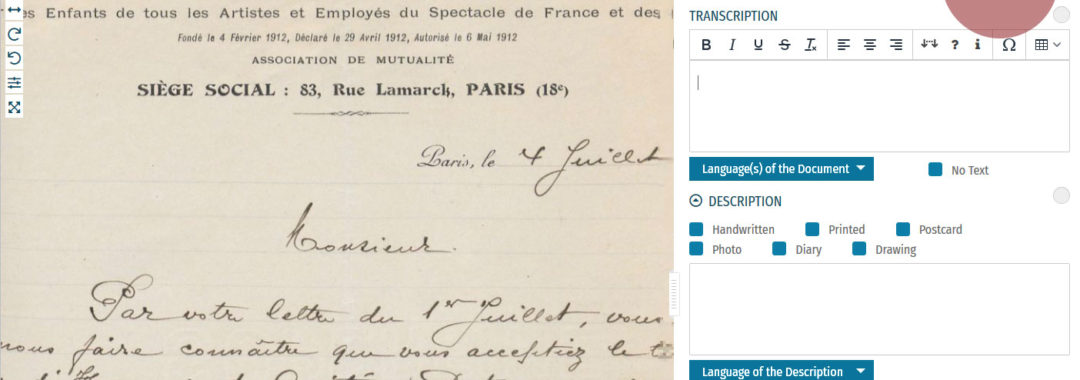 es Enfants de tous les Artistes et Employés du Spectacle de France et des
Fondé le 4 Février 1912, Déclaré le 29 Avril 1912, Autorisé le 6 Mai 1912
ASSOCIATION DE MUTUALITÉ
SIÈGE SOCIAL : 83, Rue Lamarck, PARIS (18e)
Paris, le 4 Juillet
Monsieur.
Par votre lettre du 1er Juillet, vous
nous faire connaître que vous acceptiez le
TRANSCRIPTION
B I U S Tx ? i Ω
Language(s) of the Document
No Text
DESCRIPTION
Handwritten Printed Postcard
Photo Diary Drawing
Language of the Description